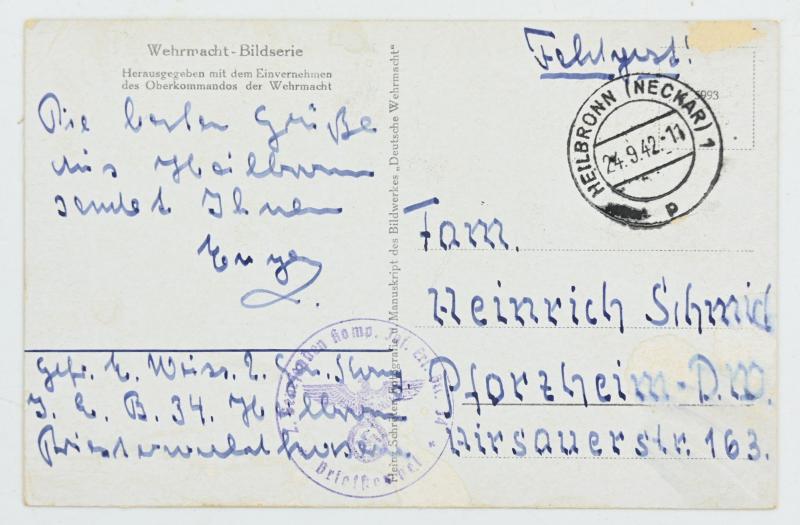 Wehrmacht-Bildserie
Herausgegeben mit dem Einvernehmen
des Oberkommandos der Wehrmacht
Die besten Grüße
aus Heilbronn
sendet Ihnen
Gefr. E. Weiss. 2.
I. E. B. 34. Heilbronn
Manuskript des Bildwerkes „Deutsche Wehrmacht"
Feldpost!
5993
HEILBRONN (NECKAR) 1
24.9.42.-11
p
Fam.
Heinrich Schmid
Pforzheim-D.W.
Hirsauerstr. 163.
Komp.
34
Briefstempel